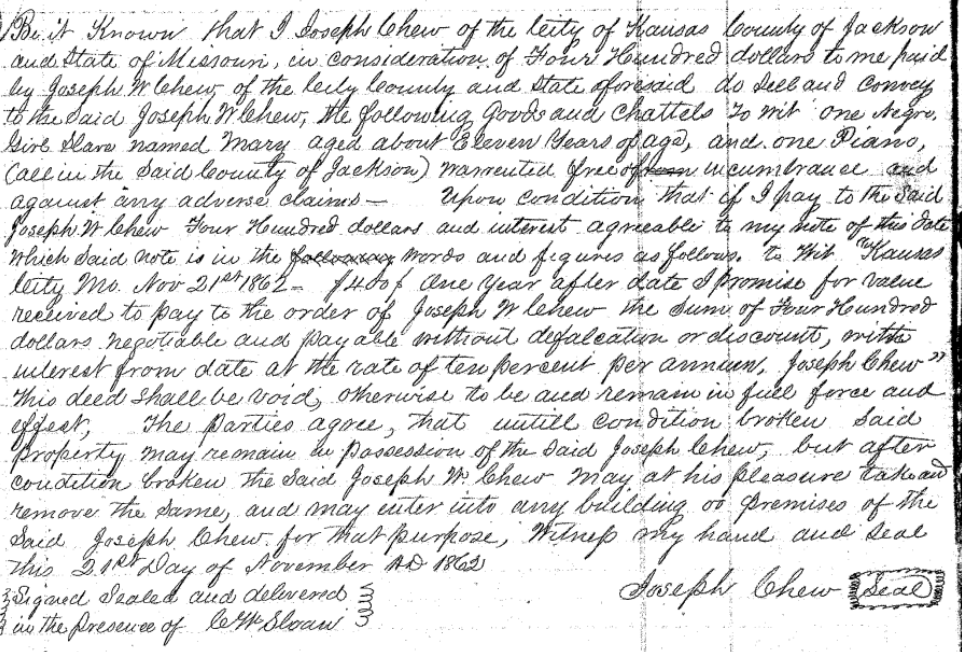 Be it Known that I Joseph Chew of the City of Kansas County of Jackson
and State of Missouri, in consideration of Four Hundred dollars to me paid
by Joseph W Chew, of the City County and State aforesaid do sell and convey
to the said Joseph W Chew, the following Goods and Chattels To Wit one Negro,
Girl Slave named Mary aged about Eleven Years of age, and one Piano,
(all in the said County of Jackson) warrented free of incumbrance and
against any adverse claims — Upon condition that if I pay to the said
Joseph W Chew Four Hundred dollars and interest agreeable to my note of this date
which said note is in the following words and figures as follows, to Wit "Kansas
City Mo. Nov 21st 1862 — One Year after date I promise for value
received to pay to the order of Joseph W Chew the Sum of Four Hundred
dollars negotiable and payable without defalcation or discount, with
interest from date at the rate of ten percent per annum, Joseph Chew"
this deed shall be void, otherwise to be and remain in full force and
effect, The parties agree, that untill condition broken said
property may remain in possession of the said Joseph Chew, but after
condition broken the said Joseph W Chew may at his pleasure take and
remove the same, and may enter into any building or premises of the
said Joseph Chew for that purpose, Witness my hand and seal
this 21st Day of November AD 1862
Joseph Chew Seal
Signed Sealed and delivered
in the presence of C W Sloan